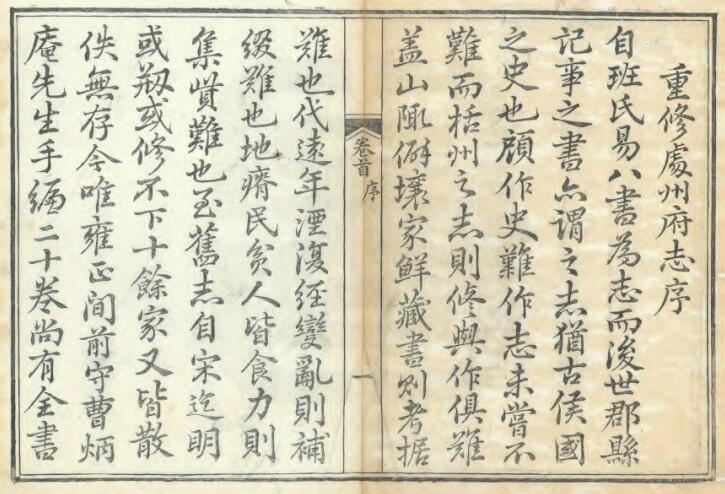 重修處州府志序
自班氏易八書為志而後世郡縣
記事之書亦謂之志猶古侯國
之史也顧作史難作志未嘗不
難而括州之志則修與作俱難
盖山陬僻壤家鮮藏書則考据
卷首 序
一
難也代遠年湮復經變亂則補
綴難也地瘠民貧人皆食力則
集貲難也至舊志自宋迄明
或刱或修不下十餘家又皆散
佚無存今唯雍正间前守曹炳
庵先生手編二十卷尚有全書